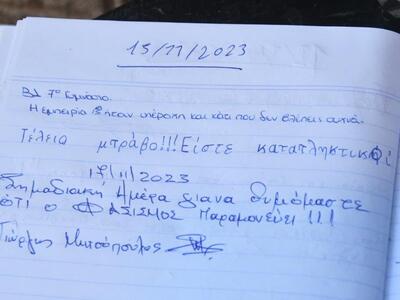 15/11/2023
Β1 7ο Γυμνάσιο
Η εμπειρία ήταν υπέροχη και κάτι που δεν βλέπεις συχνά.
Τέλεια μπράβο!!! Είστε καταπληκτικοί
17/11/2023
Σημαδιακή Ημέρα για να θυμόμαστε
ΌΤΙ Ο ΦΑΣΙΣΜΟΣ παραμονεύει!!!
Γιώργης Μητσόπουλος